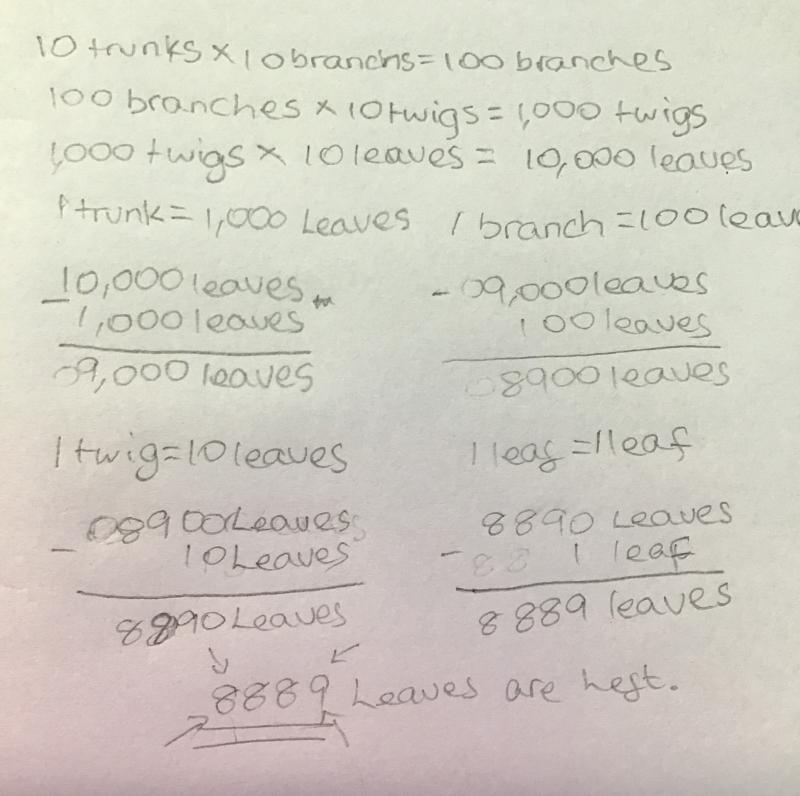 10 trunks × 10 branchs = 100 branches
100 branches × 10 twigs = 1,000 twigs
1,000 twigs × 10 leaves = 10,000 leaves
1 trunk = 1,000 Leaves 1 branch = 100 leav
10,000 leaves - 09,000 leaves
- 1,000 leaves 100 leaves
09,000 leaves 08900 leaves
1 twig = 10 leaves 1 leaf = 1 leaf
08900 Leaves 8890 Leaves
- 10 Leaves - 1 leaf
8890 Leaves 8889 leaves
8889 Leaves are left.